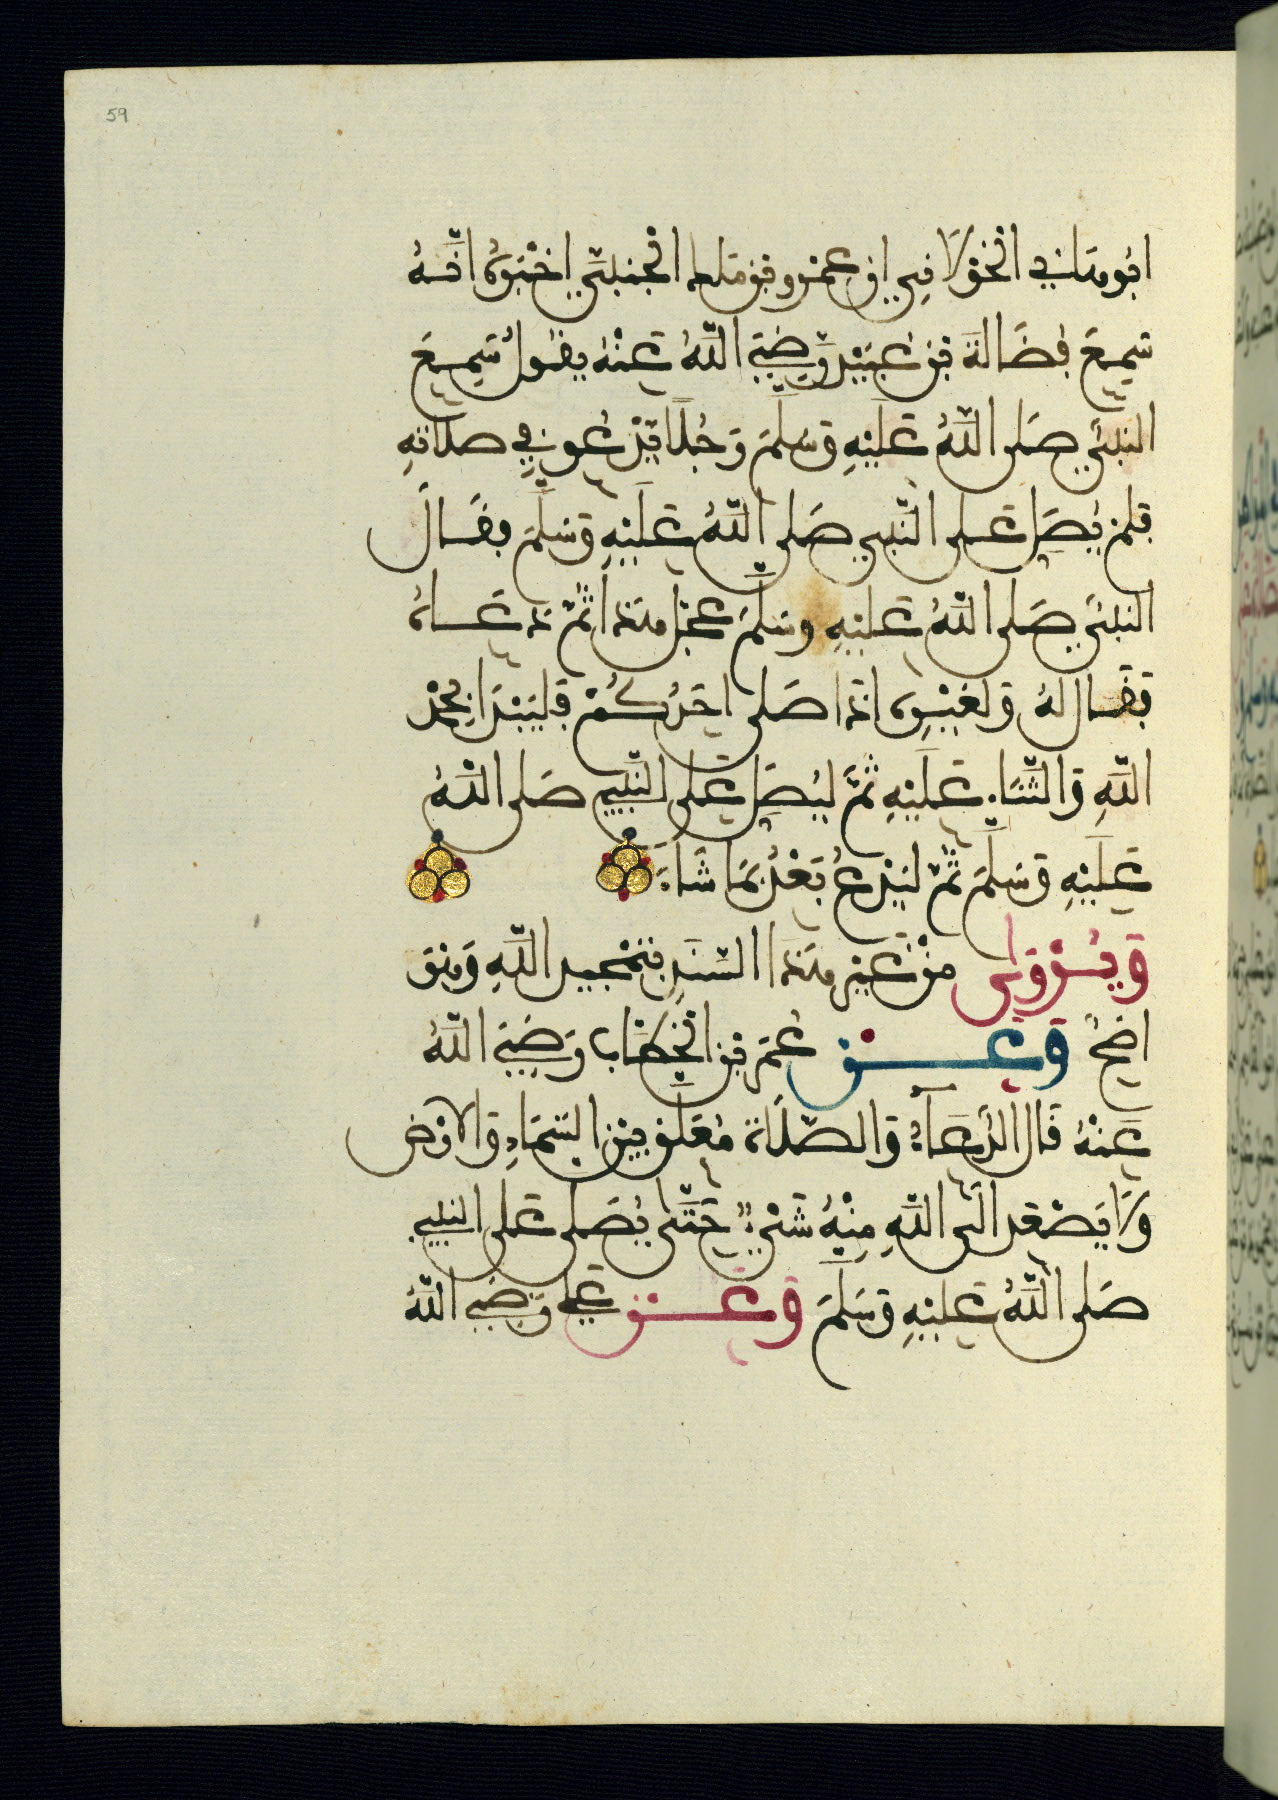 59
ابو هانئ الخولاني ان عمرو بن ملك الجنبي اخبره انه
سمع فضالة بن عبيد رضي الله عنه يقول سمع
النبي صلى الله عليه وسلم رجلا يدعو في صلاته
فلم يصل على النبي صلى الله عليه وسلم فقال
النبي صلى الله عليه وسلم عجل هذا ثم دعاه
فقال له ولغيره اذا صلى احدكم فليبدا بحمد
الله والثناء عليه ثم ليصل على النبي صلى الله
عليه وسلم ثم ليدع بعد بما شاء
ويروى من غير هذا السند بتمجيد الله وهو
اصح وعن عمر بن الخطاب رضي الله
عنه قال الدعاء والصلاة معلق بين السماء والارض
ولا يصعد الى الله منه شيء حتى يصلى على النبي
صلى الله عليه وسلم وعن علي رضي الله